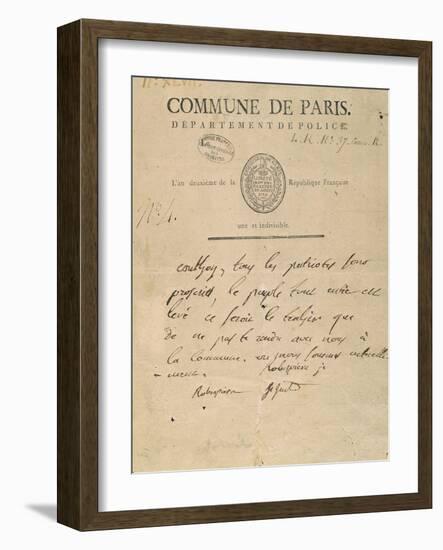 COMMUNE DE PARIS.
DÉPARTEMENT DE POLICE.
L'an deuxième de la République Française
une et indivisible.
N° 4.
couthon, tous les patriotes sont
proscrits, le peuple tout entier est
levé ce seroit le trahir que
de ne pas te rendre avec nous à
la Commune. où nous sommes actuelle
-ment. Robespierre je
Robespierre St Just